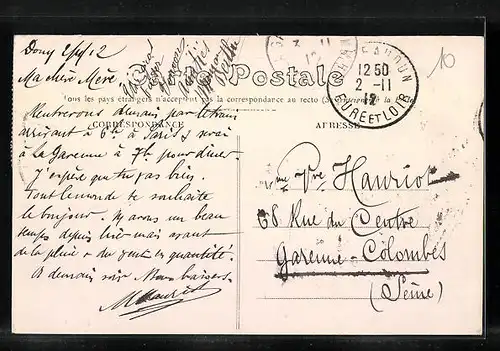 Douy 2/11/12
Ma chère Mère
Carte Postale
Tous les pays étrangers n'acceptent pas la correspondance au recto
CORRESPONDANCE
ADRESSE
Rentrerons demain par le train
arrivant à 6h à Paris & serai
à la Garenne à 7h pour dîner.
J'espère que tu vas bien.
Tout le monde te souhaite
le bonjour. Il y avons un beau
temps depuis hier mais avant
de la pluie & du vent en quantité.
A demain soir Mons baisers.
MHauriot
12 50
2 -11
12
EURE ET LOIR
Mme Vve Hauriot
68 Rue du Centre
Garenne-Colombes
(Seine)
10